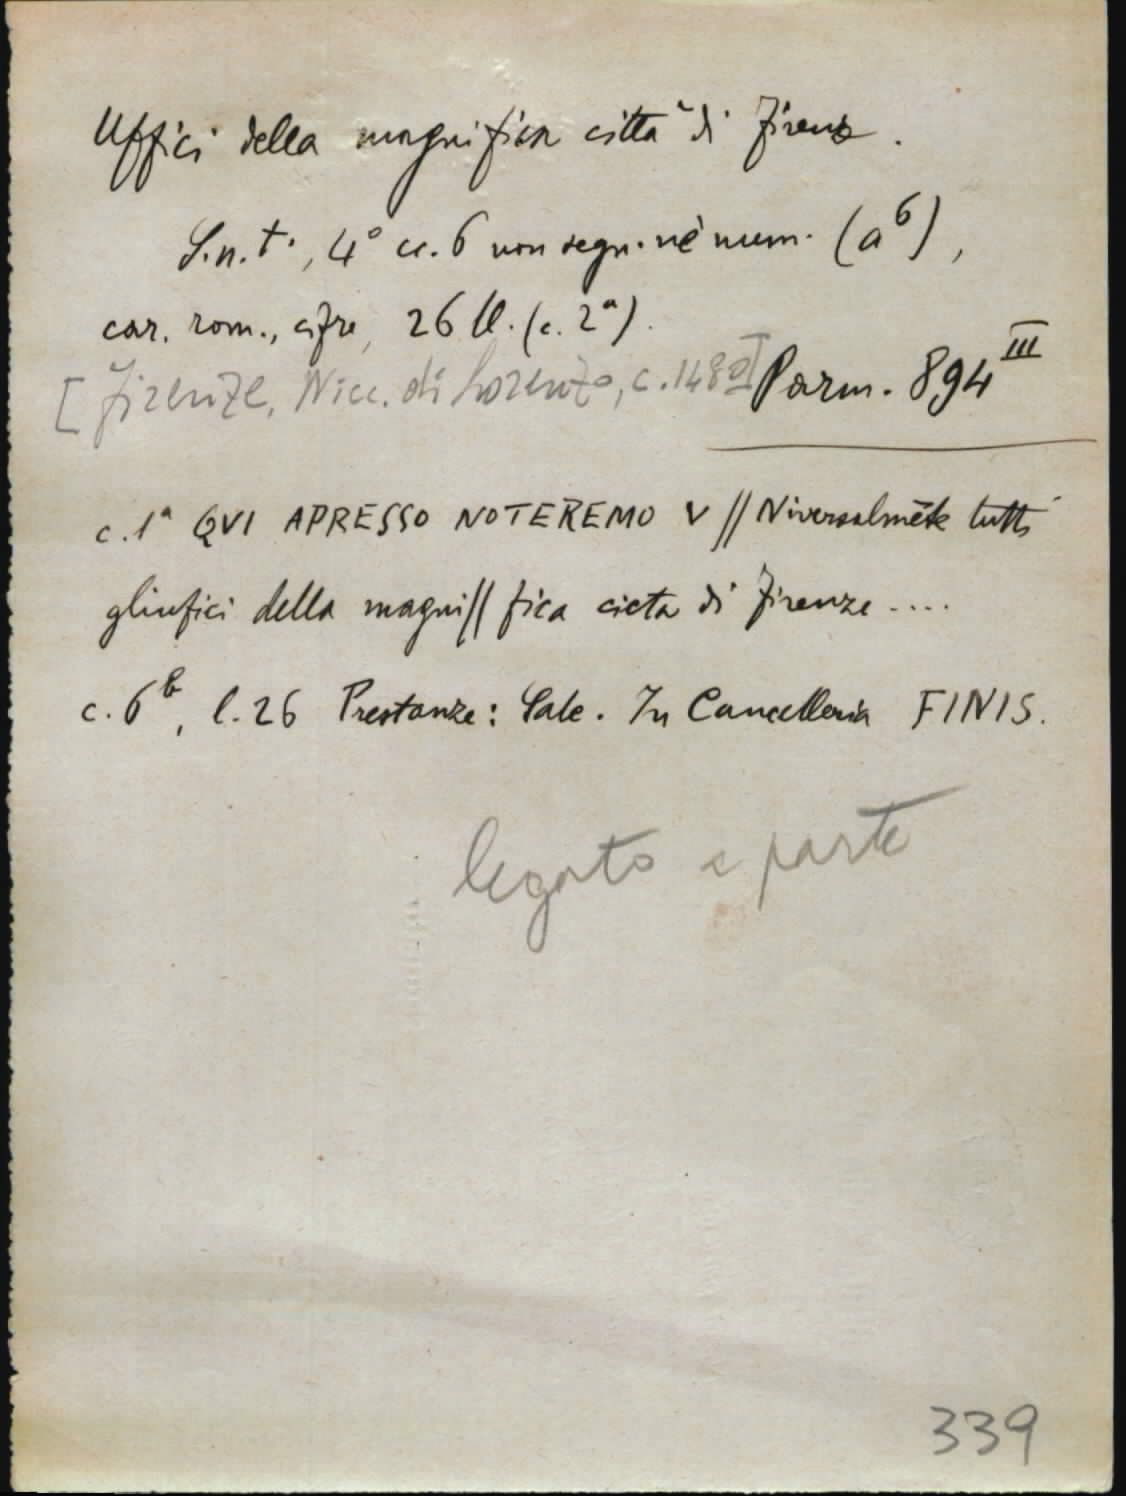 Uffici della magnifica città di Firenze.
S.n.t., 4° cc. 6 non segn. nè num. (a⁶),
car. rom., cifre, 26 ll. (c. 2ᵃ).
[Firenze, Nicc. di Lorenzo, c. 1480] Parm. 894ᴵᴵᴵ
c. 1ᵃ QVI APRESSO NOTEREMO V // Niversalmēte tutti
gliufici della magni // fica cicta di Firenze ....
c. 6ᵇ, l. 26 Prestanze: Sale. In Cancelleria FINIS.
legato a parte
339